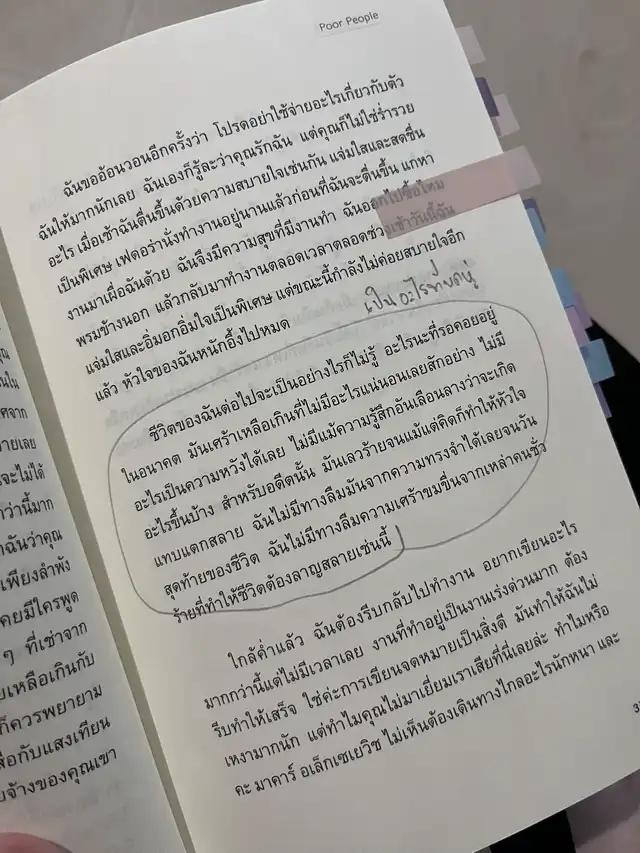 Poor People
ฉันขออ้อนวอนอีกครั้งว่า โปรดอย่าใช้จ่ายอะไรเกี่ยวกับตัว
ฉันให้มากนักเลย ฉันเองก็รู้ละว่าคุณรักฉัน แต่คุณก็ไม่ใช่ร่ำรวย
อะไร เมื่อเช้าฉันตื่นขึ้นด้วยความสบายใจเช่นกัน แจ่มใสและสดชื่น
เป็นพิเศษ เฟดอร่านั่งทำงานอยู่นานแล้วก่อนที่ฉันจะตื่นขึ้น แก่หา
งานมาเผื่อฉันด้วย ฉันจึงมีความสุขที่มีงานทำ ฉันออกไปซื้อไหม
พรมข้างนอก แล้วกลับมาทำงานตลอดเวลาตลอดช่วงเช้าวันนี้ฉัน
แจ่มใสและอิ่มอกอิ่มใจเป็นพิเศษ แต่ขณะนี้กำลังไม่ค่อยสบายใจอีก
แล้ว หัวใจของฉันหนักอึ้งไปหมด
เป็นอะไร
ชีวิตของฉันต่อไปจะเป็นอย่างไรก็ไม่รู้ อะไรนะที่รอคอยอยู่
ในอนาคต มันเศร้าเหลือเกินที่ไม่มีอะไรแน่นอนเลยสักอย่าง ไม่มี
อะไรเป็นความหวังได้เลย ไม่มีแม้ความรู้สึกอันเลือนลางว่าจะเกิด
อะไรขึ้นบ้าง สำหรับอดีตนั้น มันเลวร้ายจนแม้แต่คิดก็ทำให้หัวใจ
แทบแตกสลาย ฉันไม่มีทางลืมมันจากความทรงจำได้เลยจนวัน
สุดท้ายของชีวิต ฉันไม่มีทางลืมความเศร้าขมขื่นจากเหล่าคนชั่ว
ร้ายที่ทำให้ชีวิตต้องลาญสลายเช่นนี้
ใกล้ค่ำแล้ว ฉันต้องรีบกลับไปทำงาน อยากเขียนอะไร
มากกว่านี้แต่ไม่มีเวลาเลย งานที่ทำอยู่เป็นงานเร่งด่วนมาก ต้อง
รีบทำให้เสร็จ ใช่ค่ะการเขียนจดหมายเป็นสิ่งดี มันทำให้ฉันไม่
เหงามากนัก แต่ทำไมคุณไม่มาเยี่ยมเราเสียที่นี่เลยล่ะ ทำไมหรือ
คะ มาคาร์ อเล็กเซเยวิช ไม่เห็นต้องเดินทางไกลอะไรนักหนา และ
ยเพียงลำพัง
ๆ ที่เช่าจาก
ยเหลือเกินกับ
ก็ควรพยายาม
ือกับแสงเทียน
ยจ้างของคุณเขา